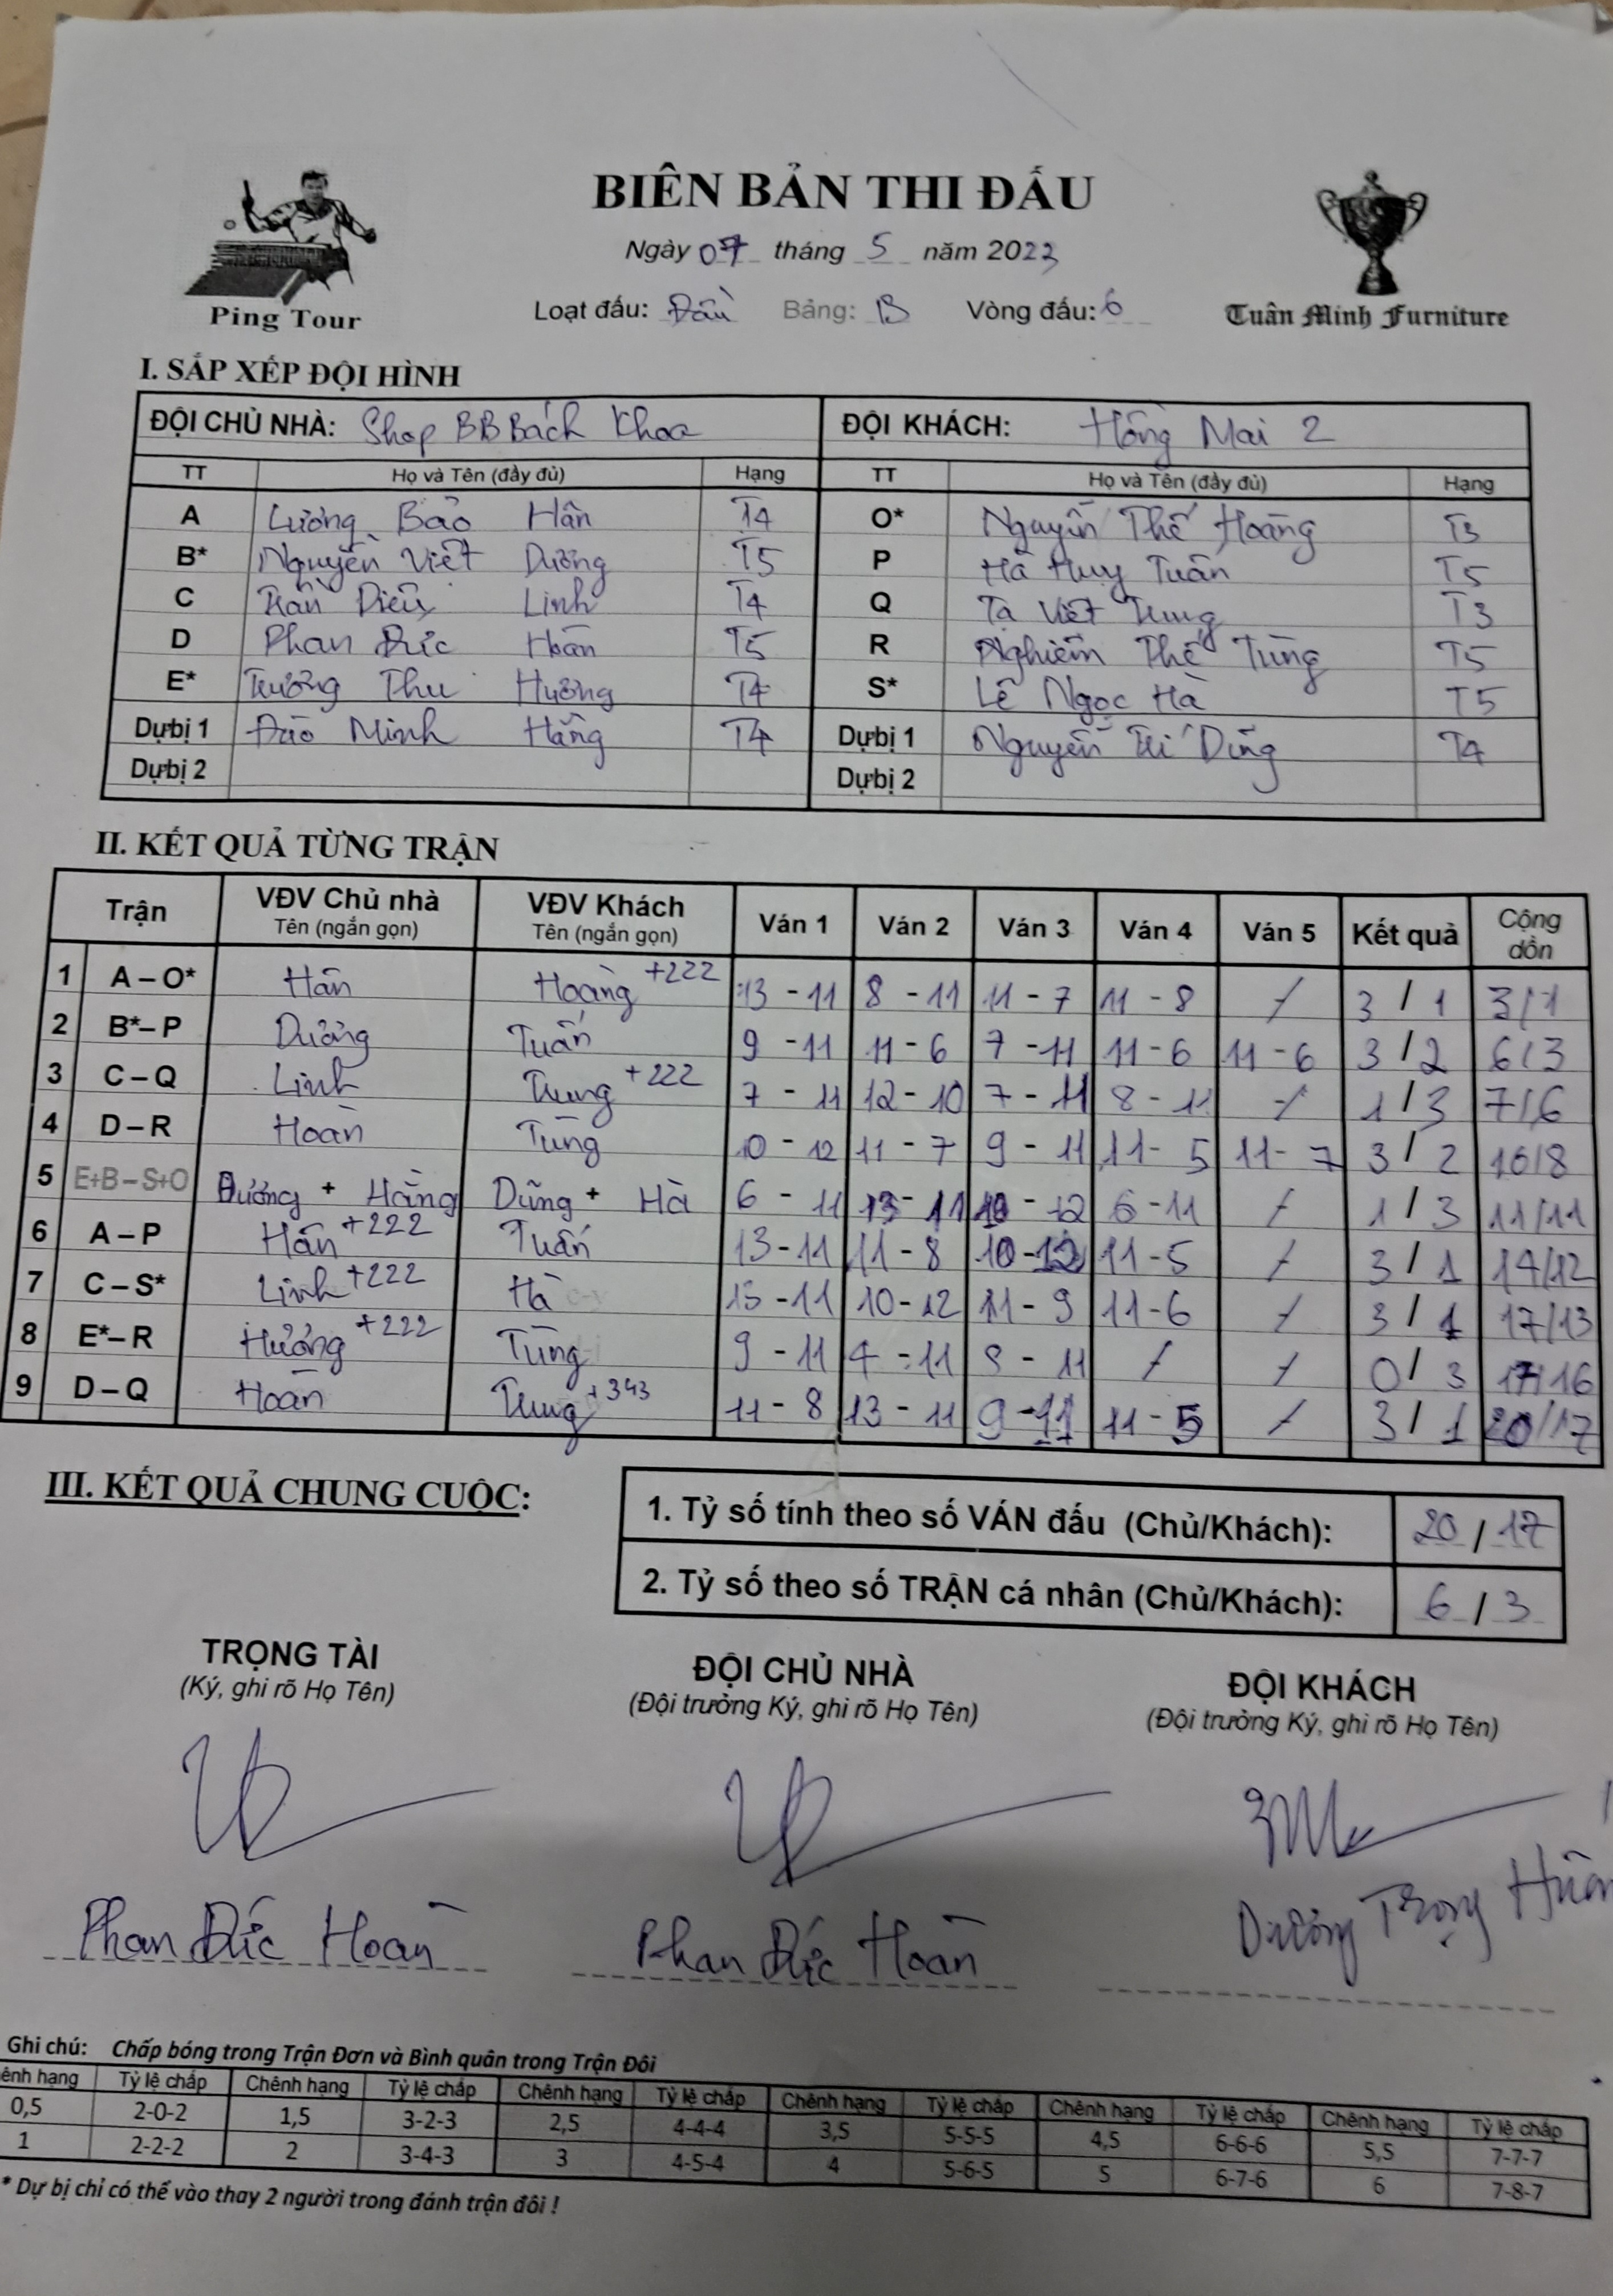 BIÊN BẢN THI ĐẤU
Ngày 07 tháng 5 năm 2023
Loạt đấu: Đầu Bảng: B Vòng đấu: 6
Ping Tour
Tuân Minh Furniture
I. SẮP XẾP ĐỘI HÌNH
ĐỘI CHỦ NHÀ: Shop BB Bách Khoa ĐỘI KHÁCH: Hồng Mai 2
TT Họ và Tên (đầy đủ) Hạng TT Họ và Tên (đầy đủ) Hạng
A Lương Bảo Hân T4 O* Nguyễn Thế Hoàng T3
B* Nguyễn Viết Dương T5 P Hà Huy Tuấn T5
C Trần Diệu Linh T4 Q Tạ Viết Trung T3
D Phan Đức Hoàn T5 R Nghiêm Thế Tùng T5
E* Trương Thu Hương T4 S* Lê Ngọc Hà T5
Dự bị 1 Đào Minh Hằng T4 Dự bị 1 Nguyễn Trí Dũng T4
Dự bị 2 Dự bị 2
II. KẾT QUẢ TỪNG TRẬN
Trận VĐV Chủ nhà Tên (ngắn gọn) VĐV Khách Tên (ngắn gọn) Ván 1 Ván 2 Ván 3 Ván 4 Ván 5 Kết quả Cộng dồn
1 A – O* Hân Hoàng +222 13 - 11 8 - 11 11 - 7 11 - 8 / 3 / 1 3/1
2 B* – P Dương Tuấn 9 - 11 11 - 6 7 - 11 11 - 6 11 - 6 3 / 2 6/3
3 C – Q Linh Trung +222 7 - 11 12 - 10 7 - 11 8 - 11 / 1 / 3 7/6
4 D – R Hoàn Tùng 10 - 12 11 - 7 9 - 11 11 - 5 11 - 7 3 / 2 10/8
5 E+B – S+O Dương + Hằng Dũng + Hà 6 - 11 13 - 11 10 - 12 6 - 11 / 1 / 3 11/11
6 A – P Hân +222 Tuấn 13 - 11 11 - 8 10 - 12 11 - 5 / 3 / 1 14/12
7 C – S* Linh +222 Hà 15 - 11 10 - 12 11 - 9 11 - 6 / 3 / 1 17/13
8 E* – R Hương +222 Tùng 9 - 11 4 - 11 8 - 11 / / 0 / 3 17/16
9 D – Q Hoàn Trung +343 11 - 8 13 - 11 9 - 11 11 - 5 / 3 / 1 20/17
III. KẾT QUẢ CHUNG CUỘC:
1. Tỷ số tính theo số VÁN đấu (Chủ/Khách): 20 / 17
2. Tỷ số theo số TRẬN cá nhân (Chủ/Khách): 6 / 3
TRỌNG TÀI ĐỘI CHỦ NHÀ ĐỘI KHÁCH
(Ký, ghi rõ Họ Tên) (Đội trưởng Ký, ghi rõ Họ Tên) (Đội trưởng Ký, ghi rõ Họ Tên)
Phan Đức Hoàn Phan Đức Hoàn Dương Trọng
Ghi chú: Chấp bóng trong Trận Đơn và Bình quân trong Trận Đôi
ênh hạng Tỷ lệ chấp Chênh hạng Tỷ lệ chấp Chênh hạng Tỷ lệ chấp Chênh hạng Tỷ lệ chấp Chênh hạng Tỷ lệ chấp Chênh hạng Tỷ lệ chấp
0,5 2-0-2 1,5 3-2-3 2,5 4-4-4 3,5 5-5-5 4,5 6-6-6 5,5 7-7-7
1 2-2-2 2 3-4-3 3 4-5-4 4 5-6-5 5 6-7-6 6 7-8-7
* Dự bị chỉ có thể vào thay 2 người trong đánh trận đôi !